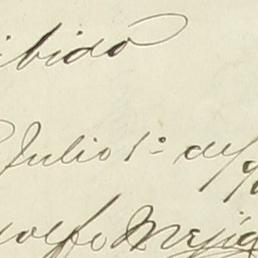 ibido
Julio 1º de 9
olfo Mejia